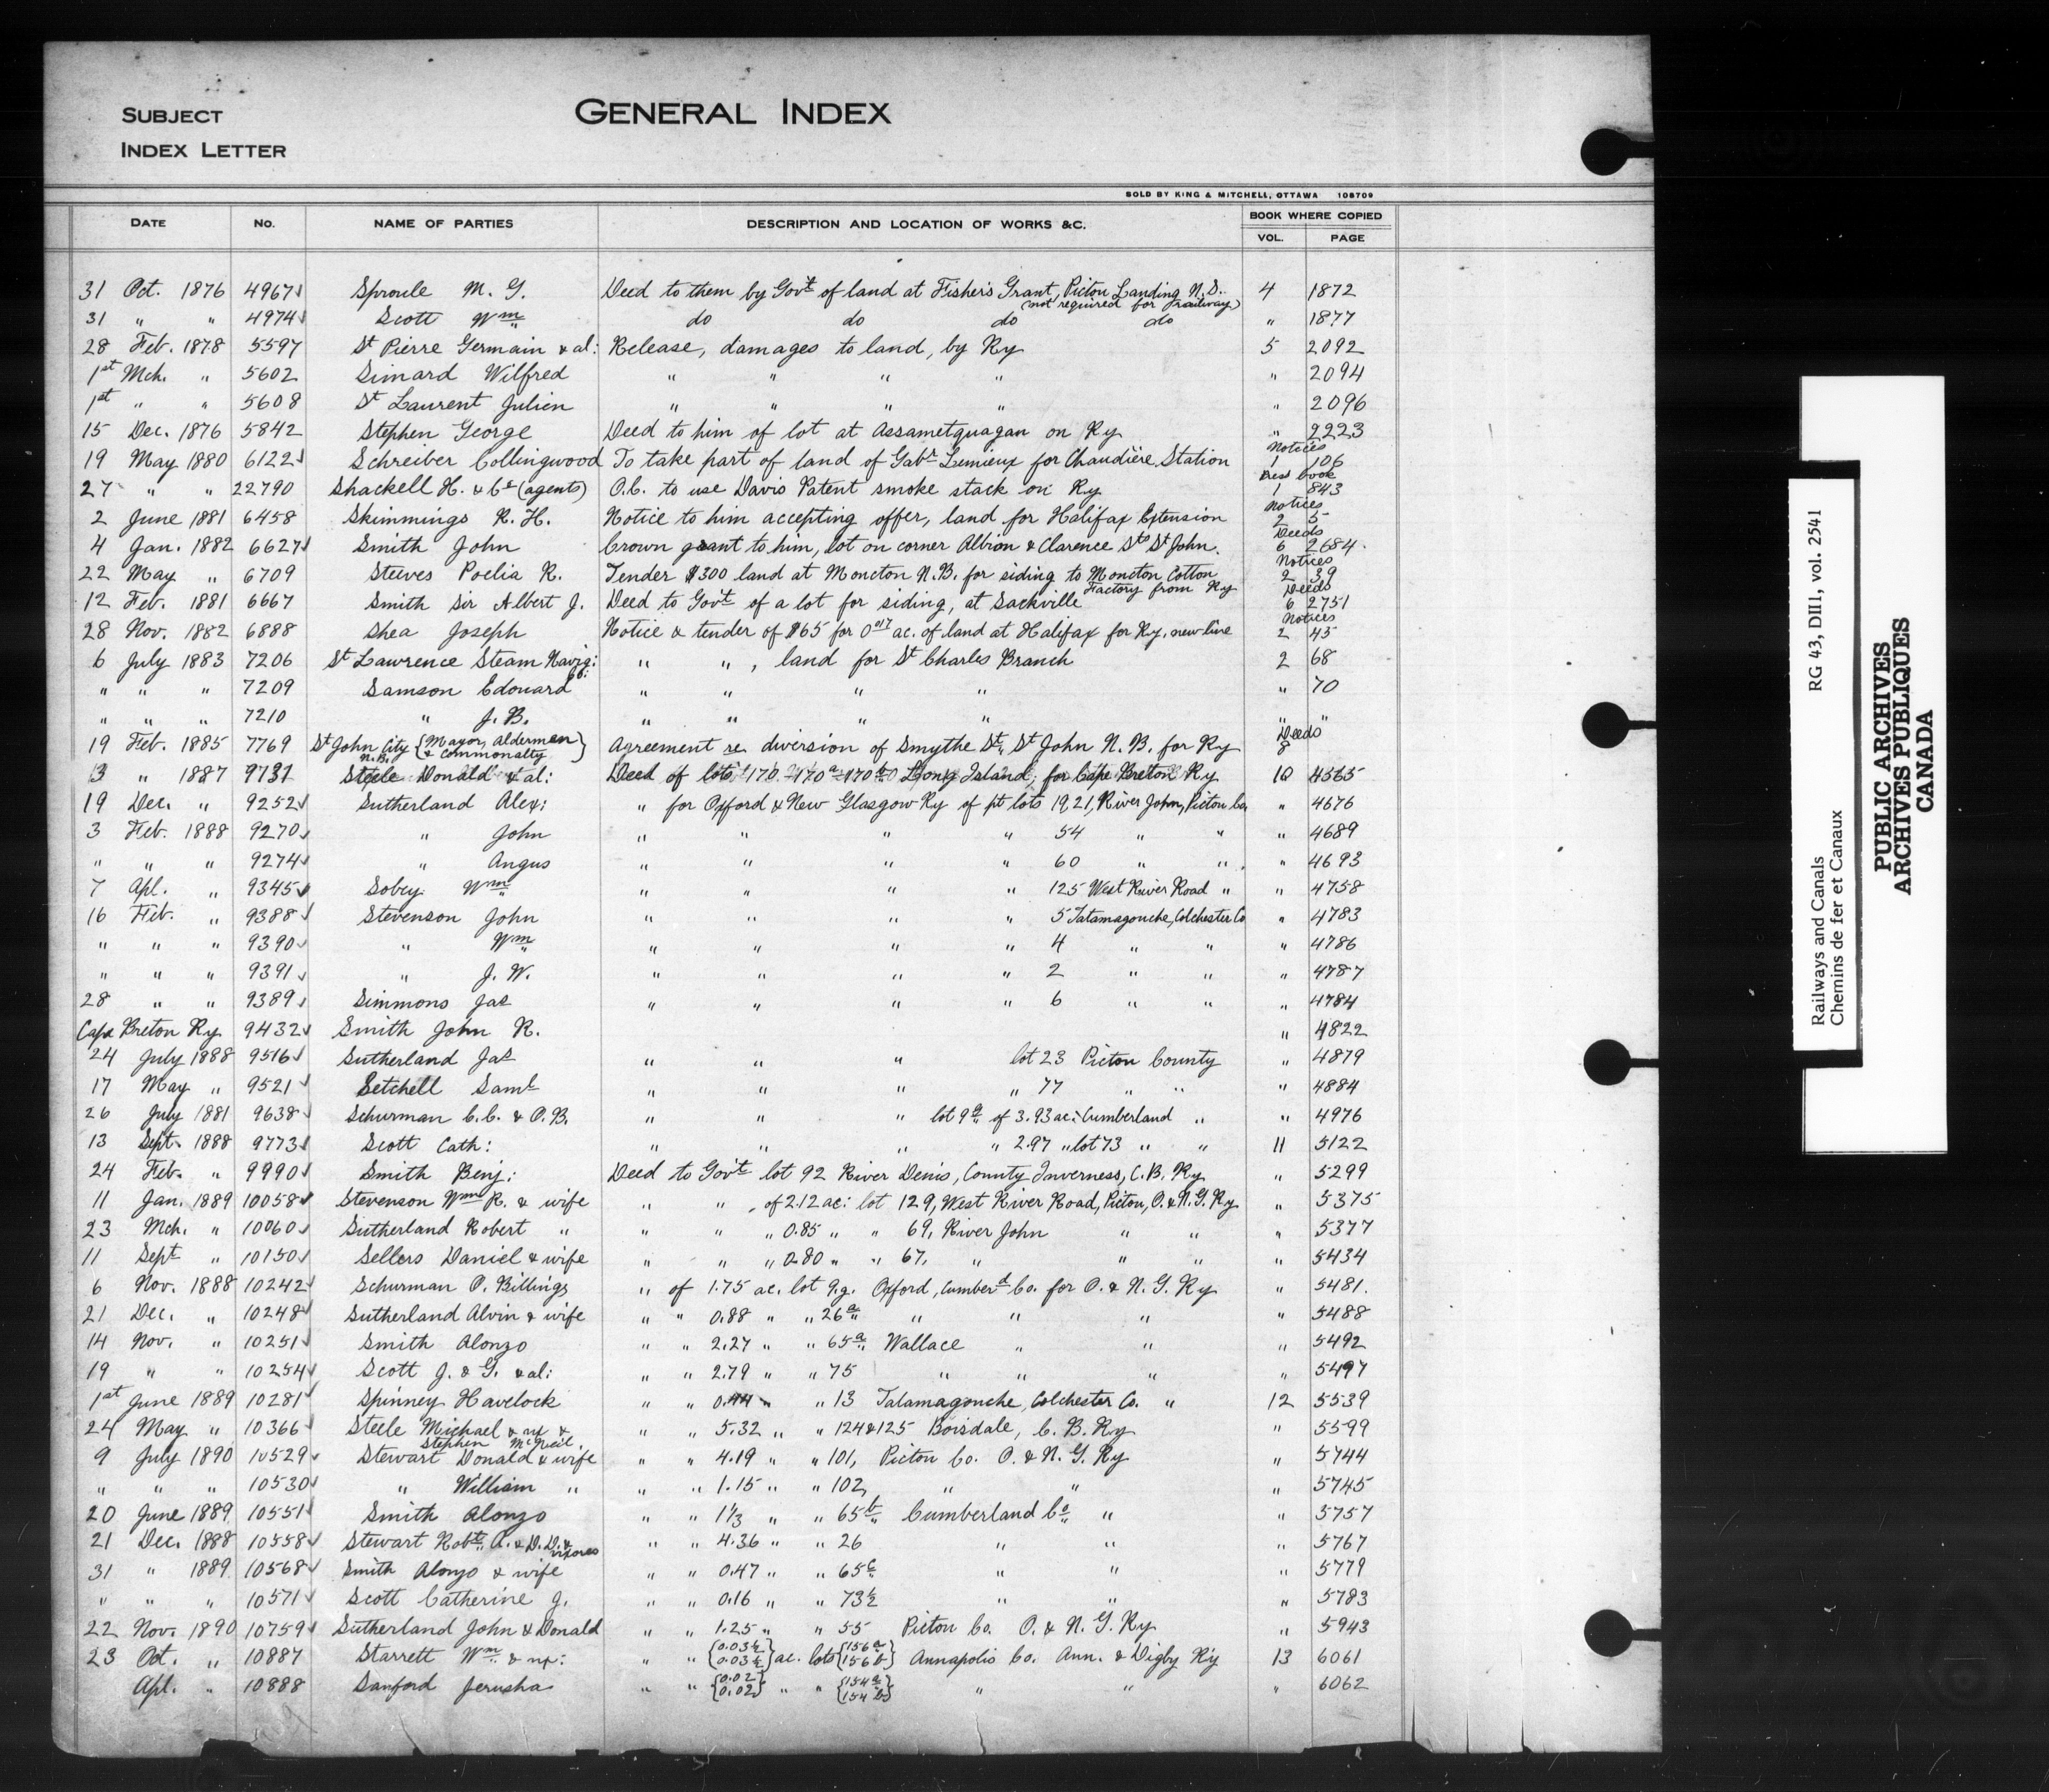 SUBJECT
GENERAL INDEX
INDEX LETTER
SOLD BY KING & MITCHELL, OTTAWA 108709
DATE No. NAME OF PARTIES DESCRIPTION AND LOCATION OF WORKS &C. BOOK WHERE COPIED
VOL. PAGE
31 Oct. 1876 4967 Sproule M. G. Deed to them by Govt of land at Fisher's Grant, Picton Landing N.S. 4 1872
(not required for railway)
31 " " 4974 Scott Wm do do do do " 1877
28 Feb. 1878 5597 St Pierre Germain & al: Release, damages to land, by Ry 5 2092
1st Mch. " 5602 Simard Wilfred " " " " " 2094
1st " " 5608 St Laurent Julien " " " " " 2096
15 Dec. 1876 5842 Stephen George Deed to him of lot at Assametquagan on Ry " 2223
Notices
19 May 1880 6122 Schreiber Collingwood To take part of land of Gabl Lemieux for Chaudière Station 1 106
book
27 " " 22790 Shackell H. & Co (agents) O.C. to use Davis Patent smoke stack on Ry 1 843
Notices
2 June 1881 6458 Skimmings R. H. Notice to him accepting offer, land for Halifax Extension 2 5
Deeds
4 Jan. 1882 6627 Smith John Crown grant to him, lot on corner Albion & Clarence Sts St John. 6 2684.
Notices
22 May " 6709 Steeves Poelia R. Tender $300 land at Moncton N.B. for siding to Moncton Cotton 2 39
Factory from Ry Deeds
12 Feb. 1881 6667 Smith Sir Albert J. Deed to Govt of a lot for siding, at Sackville 6 2751
Notices
28 Nov. 1882 6888 Shea Joseph Notice & tender of $65 for 0.017 ac. of land at Halifax for Ry. new line 2 45
6 July 1883 7206 St Lawrence Steam Navig: Co: " " , land for St Charles Branch 2 68
" " " 7209 Samson Edouard " " " " " 70
" " " 7210 " J. B. " " " " " "
Deeds
19 Feb. 1885 7769 St John City N.B. {Mayor, Aldermen & Commonalty} Agreement re diversion of Smythe St, St John N. B. for Ry 8
13 " 1887 9731 Steele Donald & al: Deed of lots 170 170a 170b Long Island, for Cape Breton Ry 10 4565
19 Dec. " 9252 Sutherland Alex: " for Oxford & New Glasgow Ry of pt lots 19, 21, River John, Picton Co " 4676
3 Feb. 1888 9270 " John " " " " 54 " " " 4689
" " " 9274 " Angus " " " " 60 " " " 4693
7 Apl. " 9345 Sobey Wm " " " " 125 West River Road " " 4758
16 Feb. " 9388 Stevenson John " " " " 5 Tatamagouche, Colchester Co " 4783
" " " 9390 " Wm " " " " 4 " " " 4786
" " " 9391 " J. W. " " " " 2 " " " 4787
28 " " 9389 Simmons Jas " " " " 6 " " " 4784
Cape Breton Ry 9432 Smith John R. " 4822
24 July 1888 9516 Sutherland Jas " " " lot 23 Picton County " 4879
17 May " 9521 Setchell Saml " " " " 77 " " " 4884
26 July 1881 9638 Schurman C. C. & O. B. " " " lot 9a of 3.93 ac: Cumberland " " 4976
13 Sept. 1888 9773 Scott Cath: " " " " 2.97 " lot 73 " " 11 5122
24 Feb. " 9990 Smith Benj: Deed to Govt lot 92 River Denis, County Inverness, C. B. Ry " 5299
11 Jan. 1889 10058 Stevenson Wm R. & wife " " , of 2.12 ac: lot 129, West River Road, Picton, O. & N. G. Ry " 5375
23 Mch. " 10060 Sutherland Robert " " " " 0.85 " " 69, River John " " " 5377
11 Sept " 10150 Sellers Daniel & wife " " " 0.80 " " 67, " " " " 5434
6 Nov. 1888 10242 Schurman O. Billings " of 1.75 ac. lot 9.g. Oxford, Cumberd Co. for O. & N. G. Ry " 5481.
21 Dec. " 10248 Sutherland Alvin & wife " " 0.88 " " 26a " " " " 5488
14 Nov. " 10251 Smith Alonzo " " 2.27 " " 65a Wallace " " " 5492
19 " " 10254 Scott J. & G. & al: " " 2.79 " " 75 " " " " 5497
1st June 1889 10281 Spinney Havelock " " 0.44 " " 13 Tatamagouche, Colchester Co. " 12 5539
24 May " 10366 Steele Michael & ux & Stephen McNeil " " 5.32 " " 124 & 125 Boisdale, C. B. Ry " 5599
9 July 1890 10529 Stewart Donald & wife " " 4.19 " " 101, Picton Co. O. & N. G. Ry " 5744
" " " 10530 " William " " " 1.15 " " 102, " " " 5745
20 June 1889 10551 Smith Alonzo " " 1 1/3 " " 65b Cumberland Co " " 5757
21 Dec. 1888 10558 Stewart Robt A. & D. D. & uxores " " 4.36 " " 26 " " " 5767
31 " 1889 10568 Smith Alonzo & wife " " 0.47 " " 65c " " " 5779
" " " 10571 Scott Catherine J. " " 0.16 " " 73½ " " " 5783
22 Nov. 1890 10759 Sutherland John & Donald " " 1.25 " " 55 Picton Co. O. & N. G. Ry " 5943
23 Oct. " 10887 Starrett Wm & ux: " " {0.03½ 0.03½} ac. lots {156a 156b} Annapolis Co. Ann. & Digby Ry 13 6061
Apl. " 10888 Sanford Jerusha " " {0.02 0.02} " " {154a 154b} " " " 6062
Railways and Canals RG 43, DIII, vol. 2541
Chemins de fer et Canaux
PUBLIC ARCHIVES
ARCHIVES PUBLIQUES
CANADA